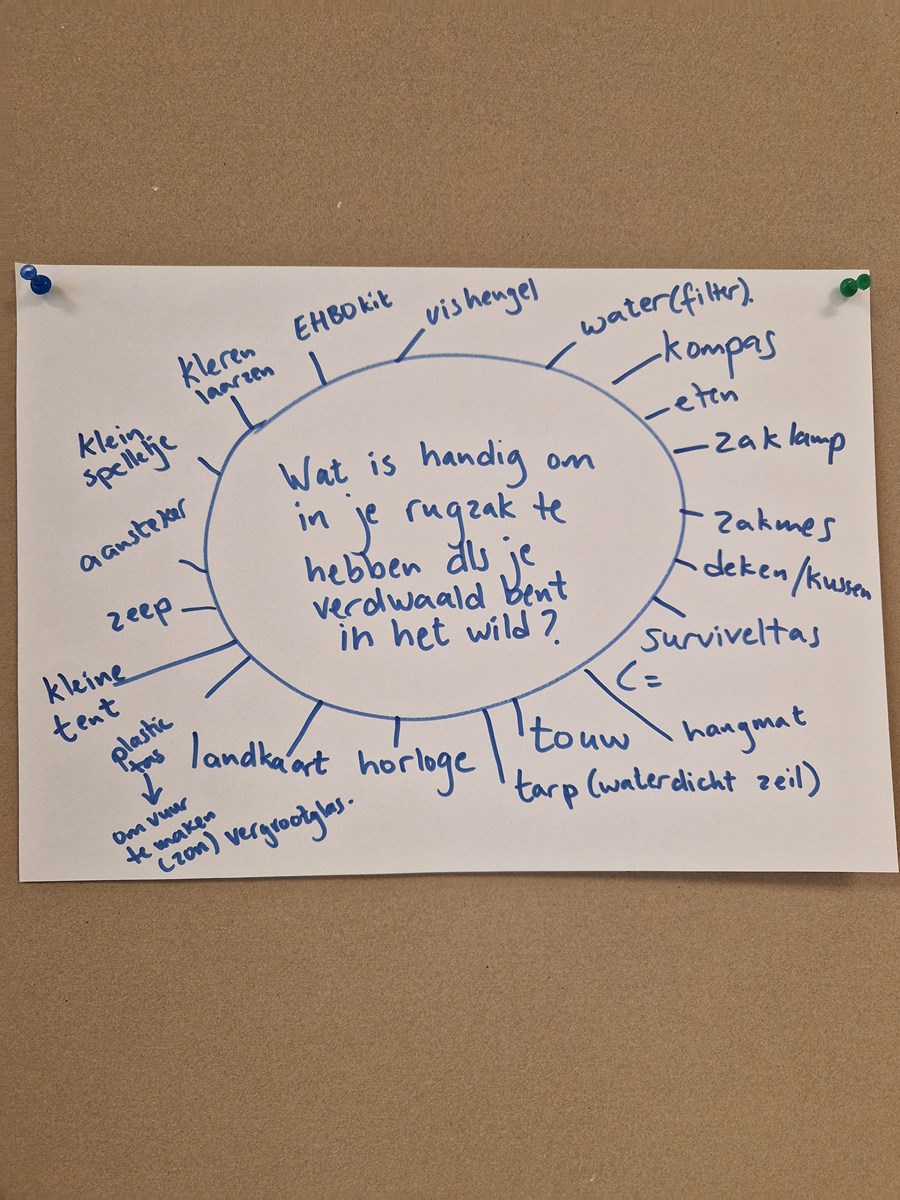 Wat is handig om
in je rugzak te
hebben als je
verdwaald bent
in het wild?
vishengel
water(filter).
kompas
eten
zaklamp
zakmes
deken/kussen
surviveltas
(=
hangmat
touw
tarp (waterdicht zeil)
horloge
landkaart
plastic
tas
om vuur
te maken
(zon) vergrootglas.
kleine
tent
zeep
aansteker
klein
spelletje
kleren
laarzen
EHBO kit